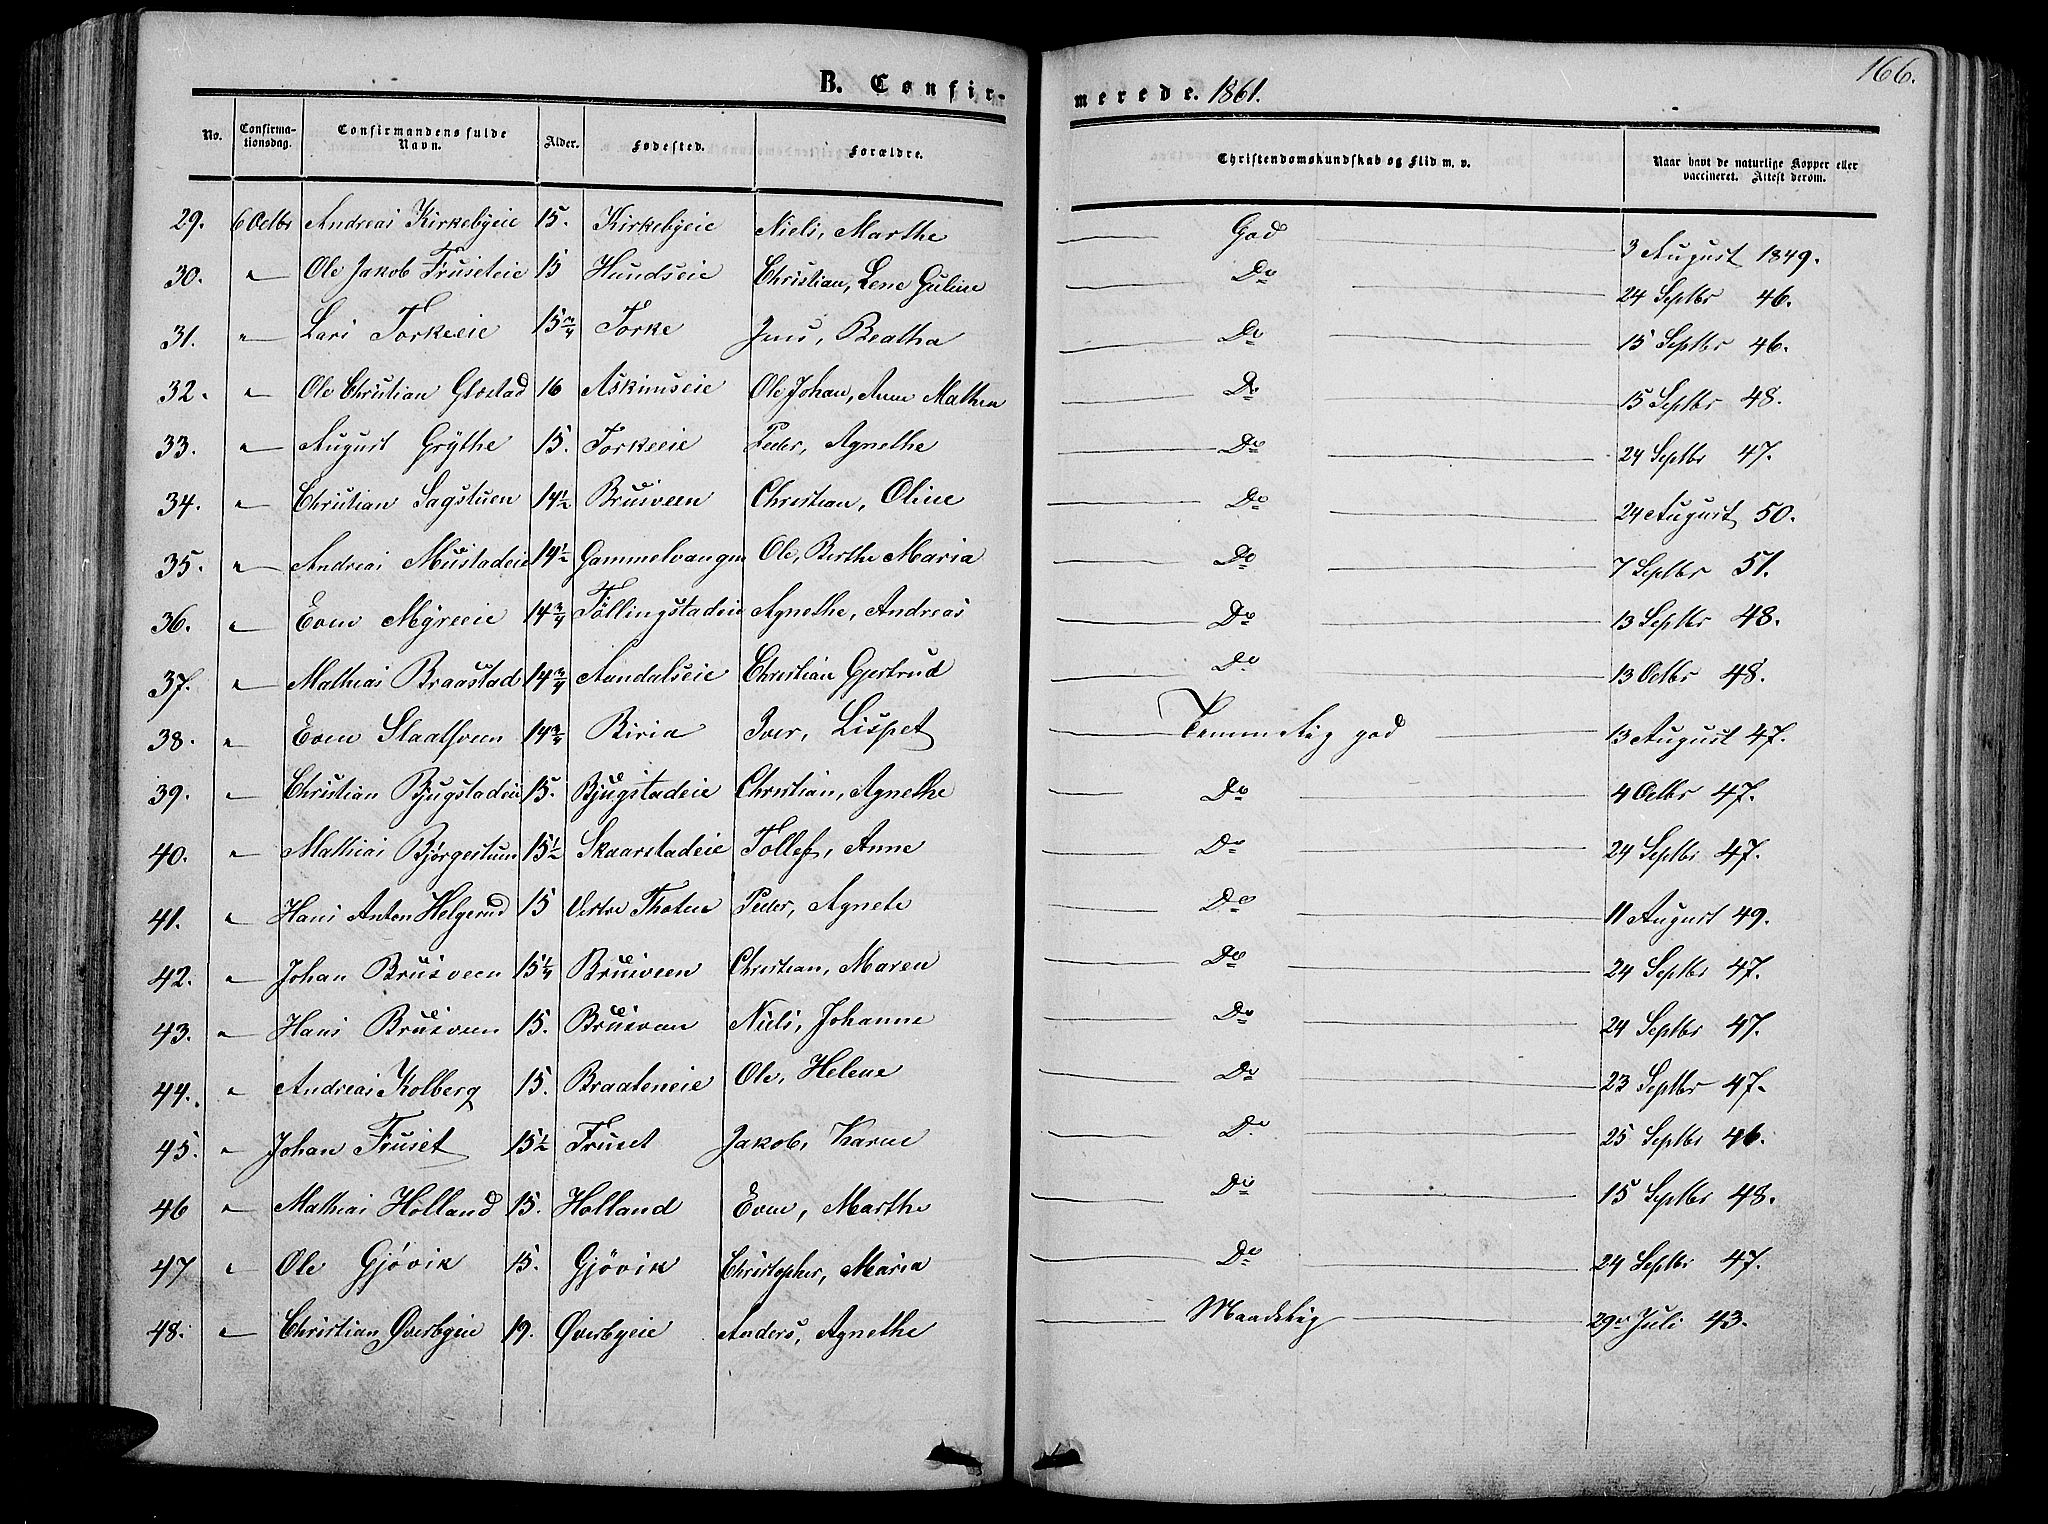 166.
B. Confirmerede. 1861.
No. Confirmationsdag. Confirmandens fulde Navn. Alder. Fødested. Forældre. Christendomskundskab og Flid m. v. Naar havt de naturlige Kopper eller vaccineret. Attest derom.
29. 6 Octbr Andreas Kirkebyeie 15. Kirkebyeie Niels, Marthe God 3 August 1849.
30. " Ole Jakob Fruseteie 15 Hundseie Christian, Lene Guline Do 24 Septbr 46.
31. " Lars Torkeeie 15 3/4 Torke Jens, Beatha Do 15 Septbr 46.
32. " Ole Christian Glæstad 16 Askimseie Ole Johan, Anne Mathea Do 15 Septbr 48.
33. " August Grÿthe 15. Torkeeie Peder, Agnethe Do 24 Septbr 47.
34. " Christian Sagstuen 14 1/2 Brusveen Christian, Oline Do 24 August 50.
35. " Andreas Mustadeie 14 1/2 Gammelvangen Ole, Berthe Maria Do 7 Septbr 51.
36. " Even Mÿreeie 14 3/4 Töllingstadeie Agnethe, Andreas Do 13 Septbr 48.
37. " Mathias Braastad 14 3/4 Aandalseie Christian Gjertrud Do 13 Octbr 48.
38. " Even Slaatsveen 14 3/4 Biria Iver, Lispet Temmelig god 13 August 47.
39. " Christian Bjugstadeie 15. Bjugstadeie Christian, Agnethe Do 4 Octbr 47.
40. " Mathias Bjørgestuen 15 1/2 Skaarstadeie Tollef, Anne Do 24 Septbr 47.
41. " Hans Anton Helgerud 15 Vestre Thoten Peder, Agnete Do 11 August 49.
42. " Johan Brusveen 15 1/4 Brusveen Christian, Maren Do 24 Septbr 47.
43. " Hans Brusveen 15. Brusveen Niels, Johanne Do 24 Septbr 47.
44. " Andreas Kolberg 15. Braateneie Ole, Helene Do 23 Septbr 47.
45. " Johan Fruset 15 1/2 Fruset Jakob, Karen Do 25 Septbr 46.
46 " Mathias Holland 15. Holland Even, Marthe Do 15 Septbr 48.
47 " Ole Gjøvik 15. Gjøvik Christopher, Maria Do 24 Septbr 47.
48. " Christian Øverbyeie 19. Øverbyeie Anders, Agnethe Maadelig 29de Juli 43.